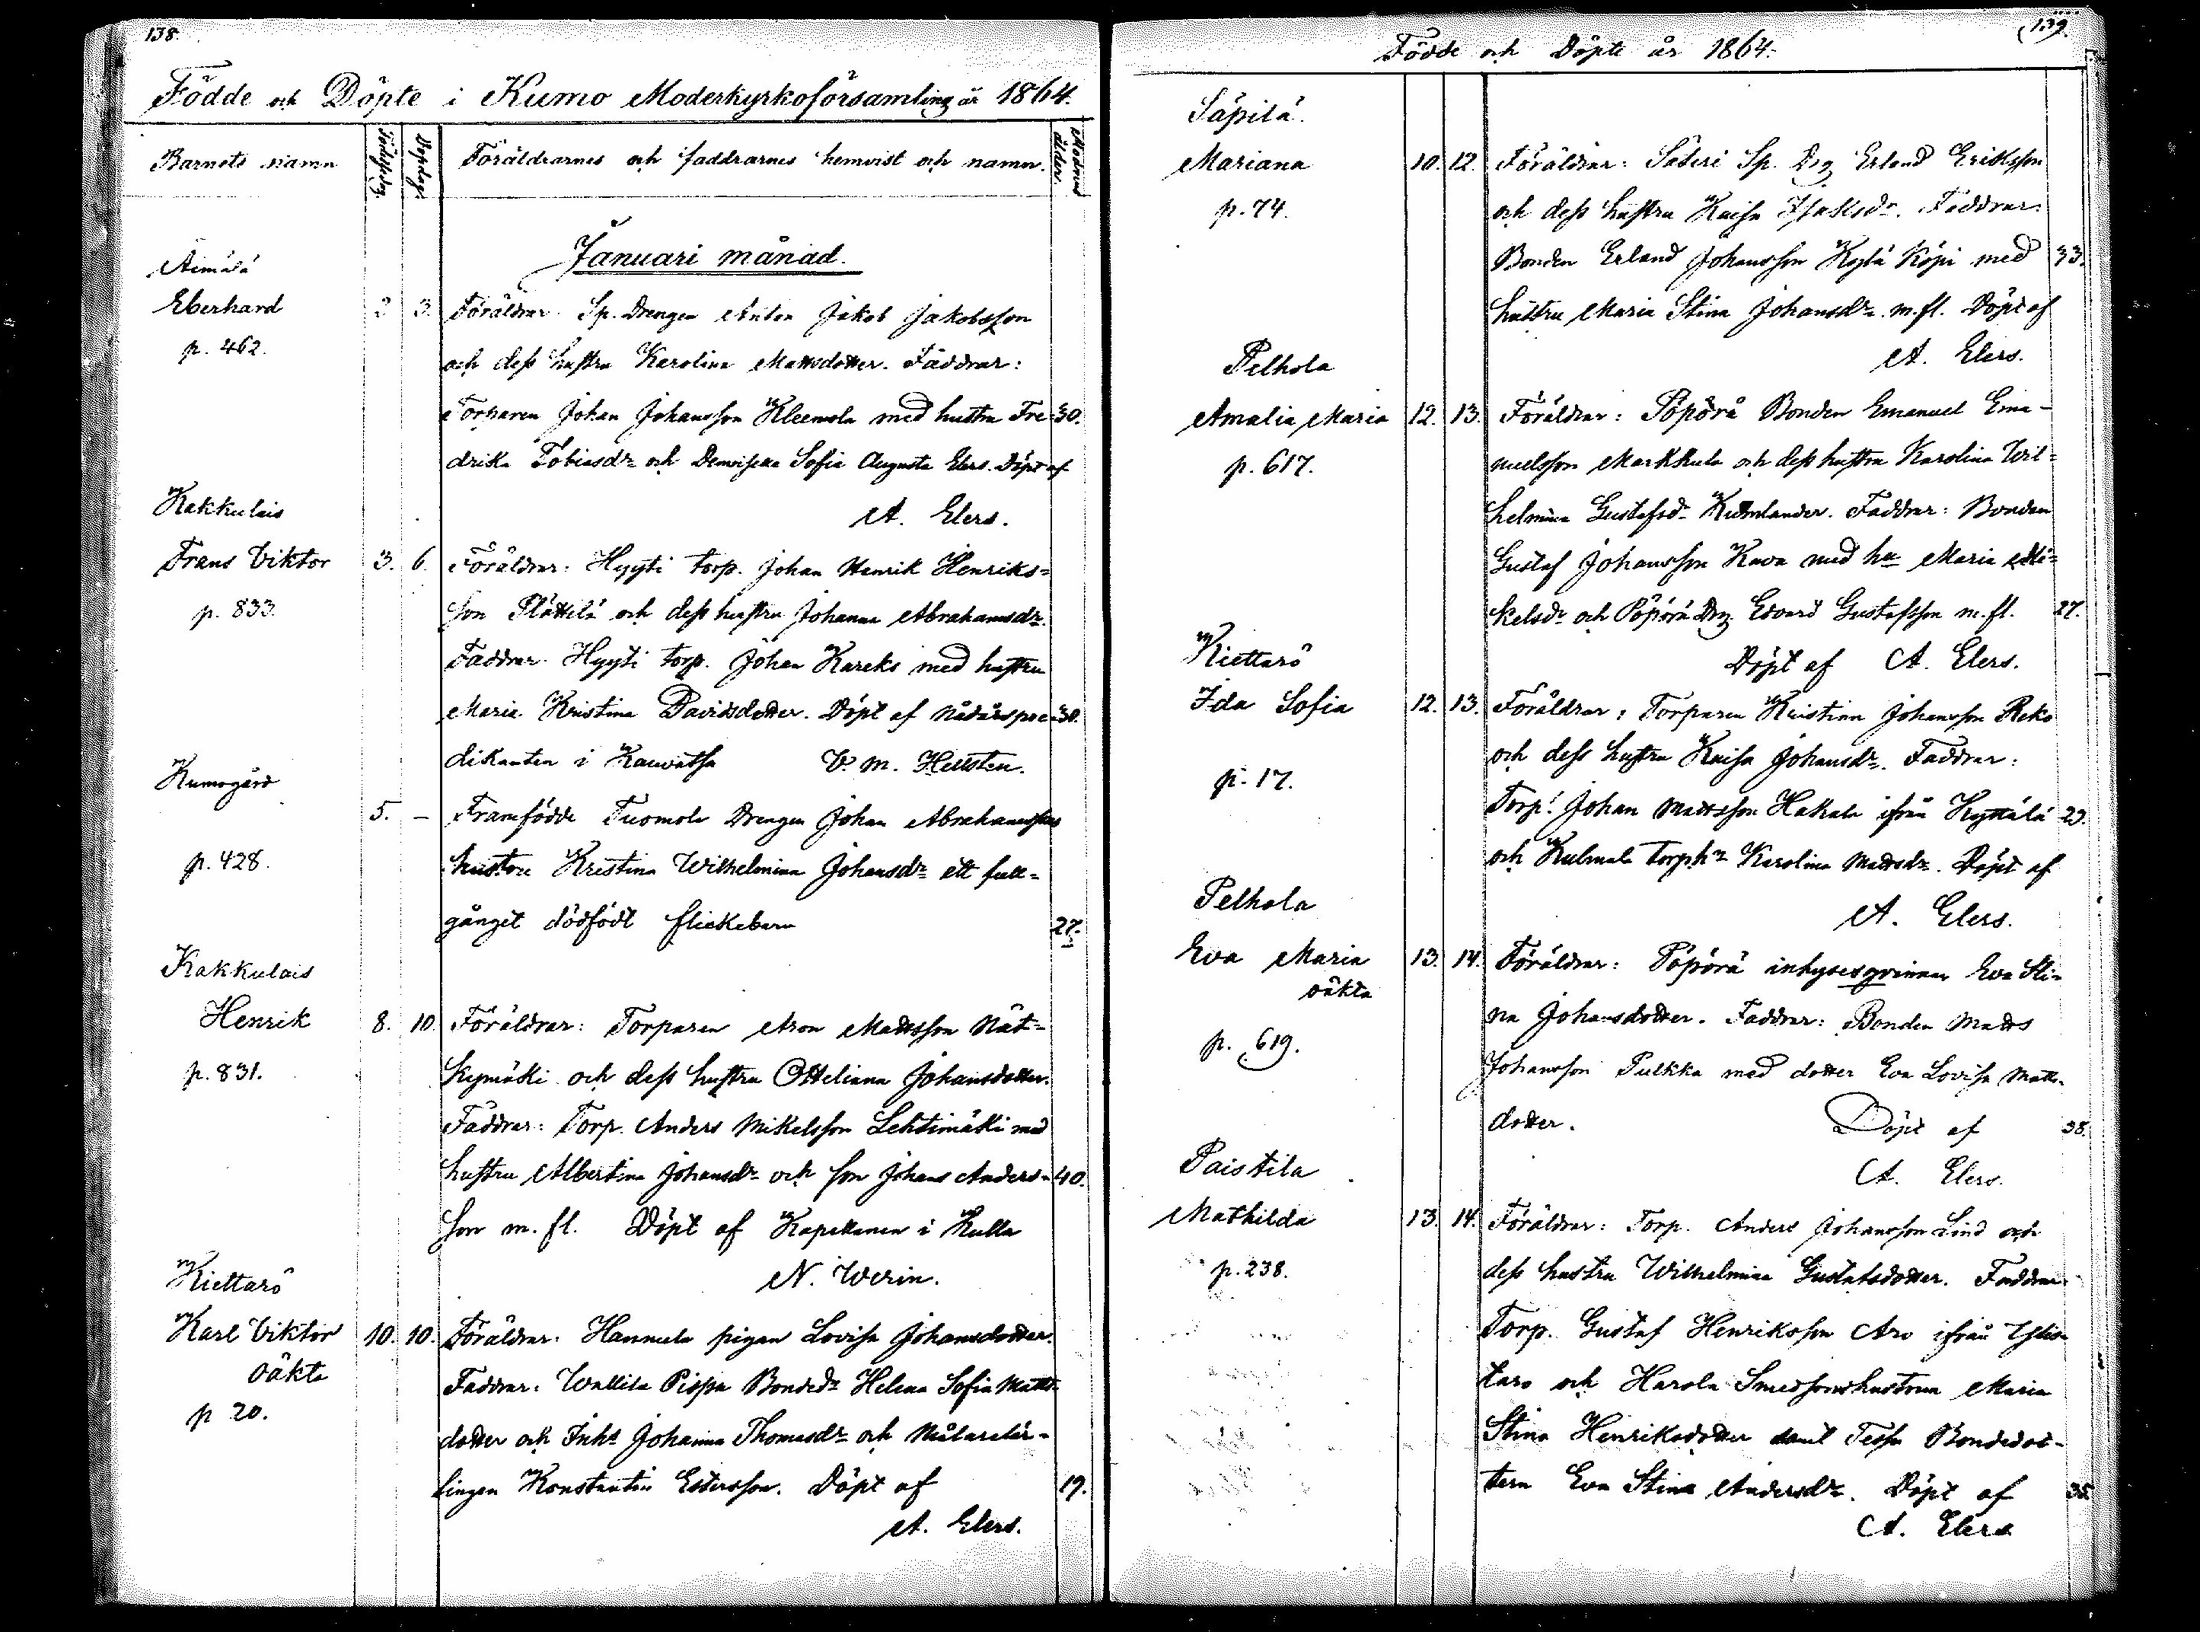 138.
Födde och Döpte i Kumo Moderkyrkoförsamling år 1864.
Barnets namn Födelsedag Dopdag Föräldrarnes och faddrarnes hemvist och namn. Modrens ålder.
Januari månad.
Aimälä
Eberhard 2 3. Föräldrar: Sp. Drengen Anton Jakob Jakobsson
p. 462. och dess hustru Karolina Mattsdotter. Faddrar:
Torparen Johan Johansson Kleemola med hustru Fre- 30.
drika Tobiasdr och Demoiselle Sofia Augusta Elers. Döpt af
A. Elers.
Kakkulais
Frans Viktor 3. 6. Föräldrar: Hyyti torp. Johan Henrik Henriks=
p. 833. son Plättilä och dess hustru Johanna Abrahamsdr.
Faddrar: Hyyti torp. Johan Kareks med hustru
Maria Kristina Davidsdotter. Döpt af nådårspre= 30.
dikanten i Kauvatsa V. M. Hellsten.
Kumogård
5. – Framfödde Tuomola Drengen Johan Abrahamssons
p. 428. hustru Kristina Wilhelmina Johansdr ett full=
gånget dödfödt flickebarn 27.
Kakkulais
Henrik 8. 10. Föräldrar: Torparen Aron Mattsson Nät=
p. 831. kynmäki och dess hustru Otteliana Johansdotter.
Faddrar: Torp. Anders Mikelsson Lehtimäki med
hustru Albertina Johansdr och son Johans Anders= 40.
son m. fl. Döpt af Kapellanen i Kulla
N. Werin.
Kiettarö
Karl Viktor 10. 10. Föräldrar: Hannula pigan Lovisa Johansdotter.
oäkta Faddrar: Wallila Pispa Bondedr Helena Sofia Matts-
p 20. dotter och Inhs Johanna Thomasdr och Målarelär=
lingen Konstantin Estersson. Döpt af 19.
A. Elers.
139.
Födde och Döpte år 1864.
Säpilä.
Mariana 10. 12. Föräldrar: Säteri Sp. Drg Erland Eriksson
p. 74. och dess hustru Kaisa Isaksdr. Faddrar:
Bonden Erland Johansson Kylä Köpi med 33.
hustru Maria Stina Johansdr. m. fl. Döpt af
A. Elers.
Pelhola
Amalia Maria 12. 13. Föräldrar: Pöpörä Bonden Emanuel Ema-
p. 617. nuelsson Markkula och dess hustru Karolina Wil=
helmina Gustafsdr Kumlander. Faddrar: Bonden
Gustaf Johansson Kava med hu Maria Mi=
kelsdr och Pöpörä Drg. Edvard Gustafsson m. fl. 27.
Döpt af A. Elers.
Kiettarö
Ida Sofia 12. 13. Föräldrar: Torparen Kristian Johansson Reko
och dess hustru Kaisa Johansdr. Faddrar:
p. 17. Torp. Johan Mattsson Hakala ifrån Kyttälä 29.
och Kulmala Torphu Karolina Mattsdr. Döpt af
A. Elers.
Pelhola
Eva Maria 13. 14. Föräldrar: Pöpörä inhysesqvinnan Eva Sti=
oäkta na Johansdotter. Faddrar: Bonden Matts
p. 619. Johansson Pulkka med dotter Eva Lovisa Matts-
dotter. Döpt af 38.
A. Elers.
Paistila
Mathilda 13. 14. Föräldrar: Torp. Anders Johansson Lind och
p. 238. dess hustru Wilhelmina Gustafsdotter. Faddrar:
Torp. Gustaf Henriksson Aro ifrån Ylis=
taro och Harola Smedsonshustrun Maria
Stina Henriksdotter samt Teispa Bondedot-
tern Eva Stina Andersdr. Döpt af 35.
A. Elers